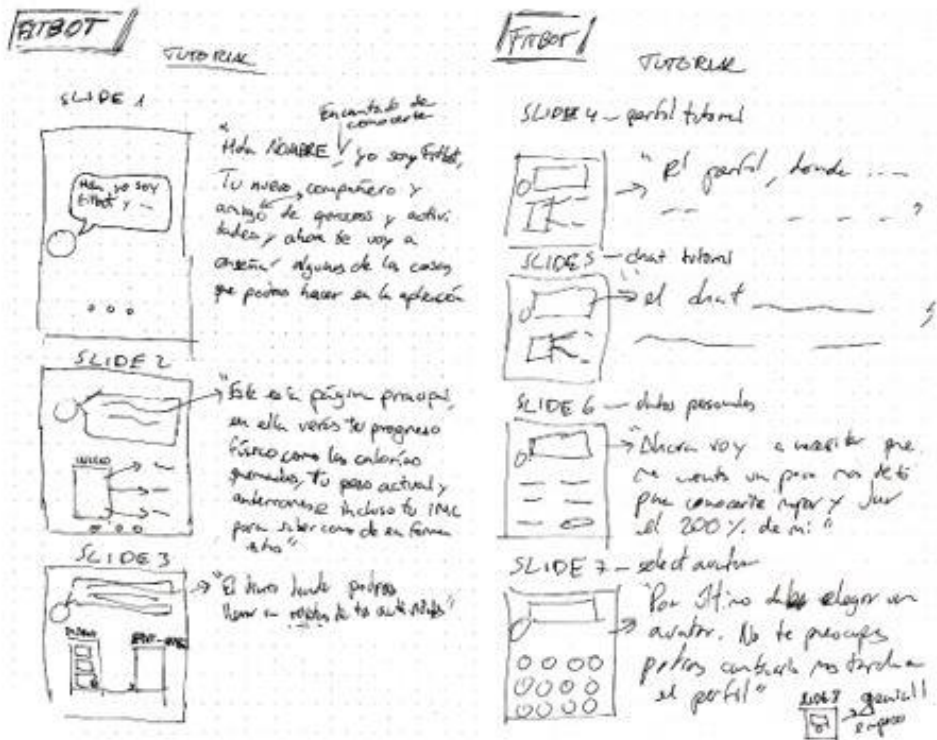 FITBOT
TUTORIAL
SLIDE 1
Hola, yo soy
Fitbot y ...
Encantado de
conocerte
"Hola NOMBRE, yo soy Fitbot,
Tu nuevo compañero y
amigo de y activi-
dades y ahora te voy a
enseñar algunas de las cosas
que podras hacer en la aplicación
SLIDE 2
"Esta es la página principal,
en ella verás tu progreso
físico como las calorías
quemadas, Tu peso actual y
e incluso tu IMC
para saber como de en forma
estás"
INICIO
SLIDE 3
"El donde podras
llevar un de tus actividades"
FITBOT
TUTORIAL
SLIDE 4 - perfil tutorial
"El perfil, donde ....
"
SLIDE 5 - chat tutorial
"el chat
"
SLIDE 6 - datos personales
"Ahora voy a necesitar que
me cuentes un poco mas de ti
para conocerte mejor y dar
el 200% de mi"
SLIDE 7 - select avatar
"Por último debes elegir un
avatar. No te preocupes
podras cambiarlo mas tarde en
el perfil"
SLIDE 8
genial!